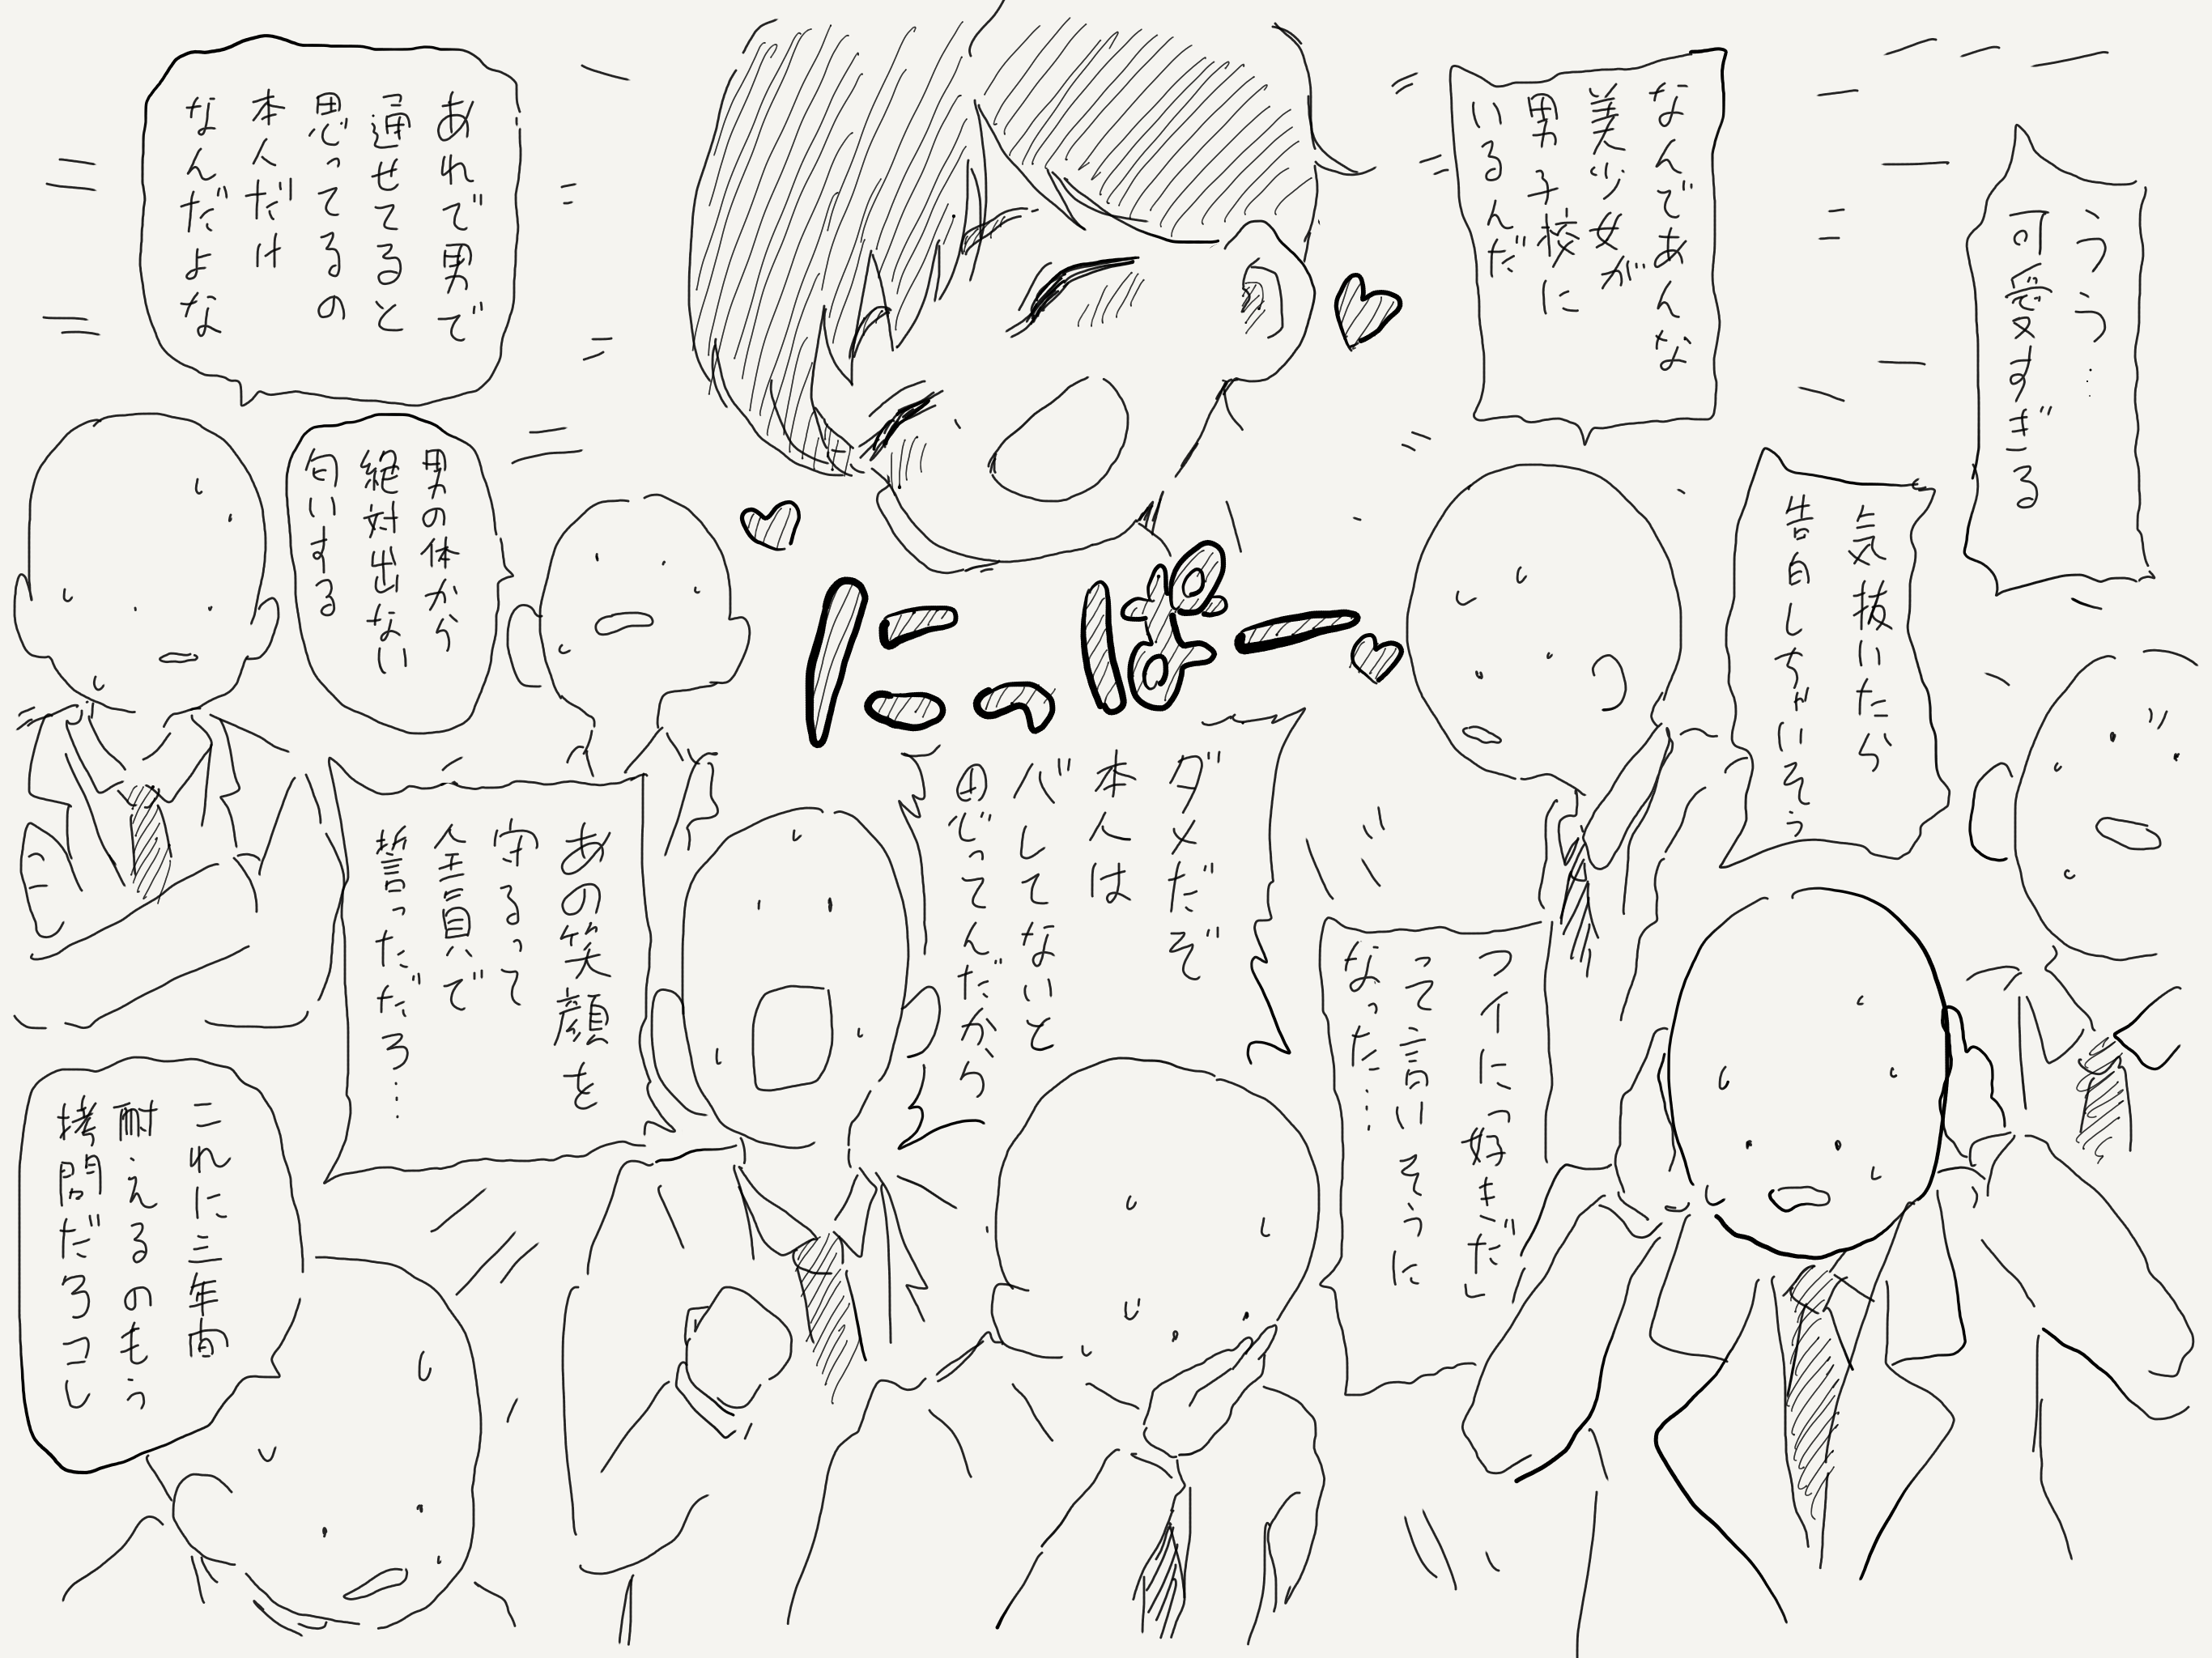 うう…
可愛すぎる
なんであんな
美少女が
男子校に
いるんだ
気抜いたら
告白しちゃいそう
フイにっ好きだし
って言いそうに
なった…
にっぱー
ダメだぞ
本人は
バレてないと
思ってんだから
あの笑顔を
守るって
全員で
誓っただろ…
あれで男で
通せてると
思ってるの
本人だけ
なんだよな
男の体から
絶対出ない
匂いする
これに三年間
耐えるのもう
拷問だろコレ